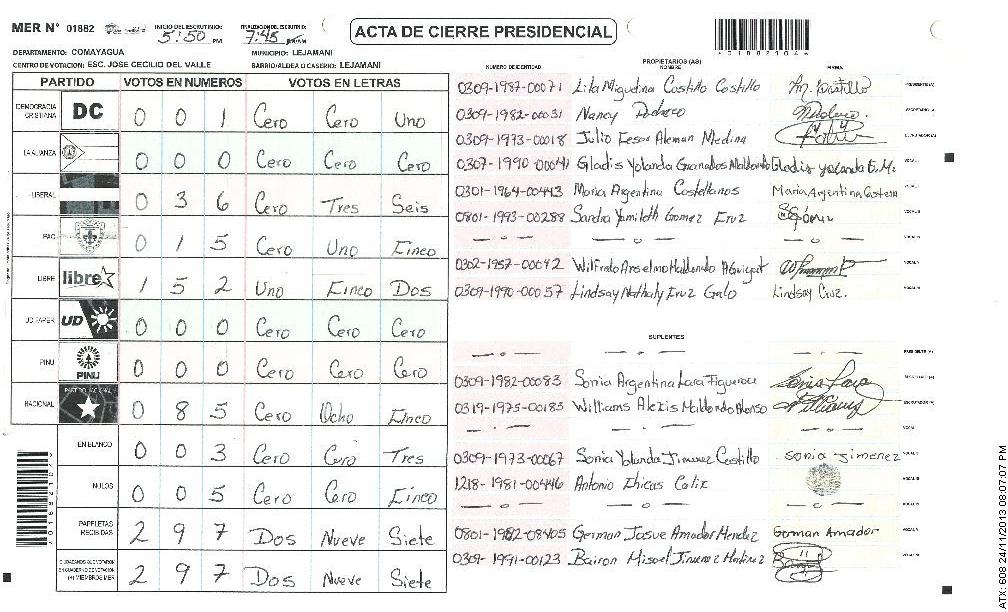 MER N° 01882 INICIO DEL ESCRUTINIO: 5:50 PM FINALIZACION DEL ESCRUTINIO: 7:45 ACTA DE CIERRE PRESIDENCIAL
01882104
DEPARTAMENTO: COMAYAGUA MUNICIPIO: LEJAMANI
CENTRO DE VOTACION: ESC. JOSE CECILIO DEL VALLE BARRIO/ALDEA O CASERIO: LEJAMANI
PARTIDO VOTOS EN NUMEROS VOTOS EN LETRAS
DEMOCRACIA CRISTIANA DC 0 0 1 Cero Cero Uno
LA ALIANZA 0 0 0 Cero Cero Cero
LIBERAL 0 3 6 Cero Tres Seis
PAC 0 1 5 Cero Uno Cinco
LIBRE libre 1 5 2 Uno Cinco Dos
UD FAPER UD 0 0 0 Cero Cero Cero
PINU PINU 0 0 0 Cero Cero Cero
NACIONAL PARTIDO NACIONAL 0 8 5 Cero Ocho Cinco
EN BLANCO 0 0 3 Cero Cero Tres
NULOS 0 0 5 Cero Cero Cinco
PAPELETAS RECIBIDAS 2 9 7 Dos Nueve Siete
CIUDADANOS QUE VOTARON EN CUADERNO DE VOTACION (+) MIEMBROS MER 2 9 7 Dos Nueve Siete
PROPIETARIOS (AS)
NUMERO DE IDENTIDAD NOMBRE FIRMA
0309-1987-00071 Costillo Costillo PRESIDENTE (A)
0309-1982-00031 Nancy Pacheco SECRETARIO (A)
0309-1973-00018 Julio Cesar Aleman Medina ESCRUTADOR (A)
0307-1990-00041 Gladis Yolanda Granados Maldonado Gladis Yolanda G. M. VOCAL I
0301-1964-00443 Maria Argentina Castellanos Maria Argentina VOCAL II
0801-1993-00288 Sandra Yamileth Gomez Cruz VOCAL III
0302-1957-00042 Wilfredo Anselmo Maldonado VOCAL V
0309-1990-00057 Lindsay Nathaly Cruz Galo Lindsay Cruz. VOCAL VI
SUPLENTES
PRESIDENTE (A)
0309-1982-00083 Sonia Argentina Lara Figueroa Sonia Lara SECRETARIO (A)
0319-1975-00183 Williams Alexis Maldonado Alonso Williams ESCRUTADOR (A)
VOCAL I
0309-1973-00067 Sonia Yolanda Jimenez Castillo Sonia Jimenez VOCAL II
1218-1981-00446 Antonio Chicas Calix VOCAL III
0801-1982-08405 German Josue Amador Mendez German Amador VOCAL V
0309-1991-00123 Bairon Misael Jimenez Martinez VOCAL VI
ATX: 608 24/11/2013 08:07:07 PM